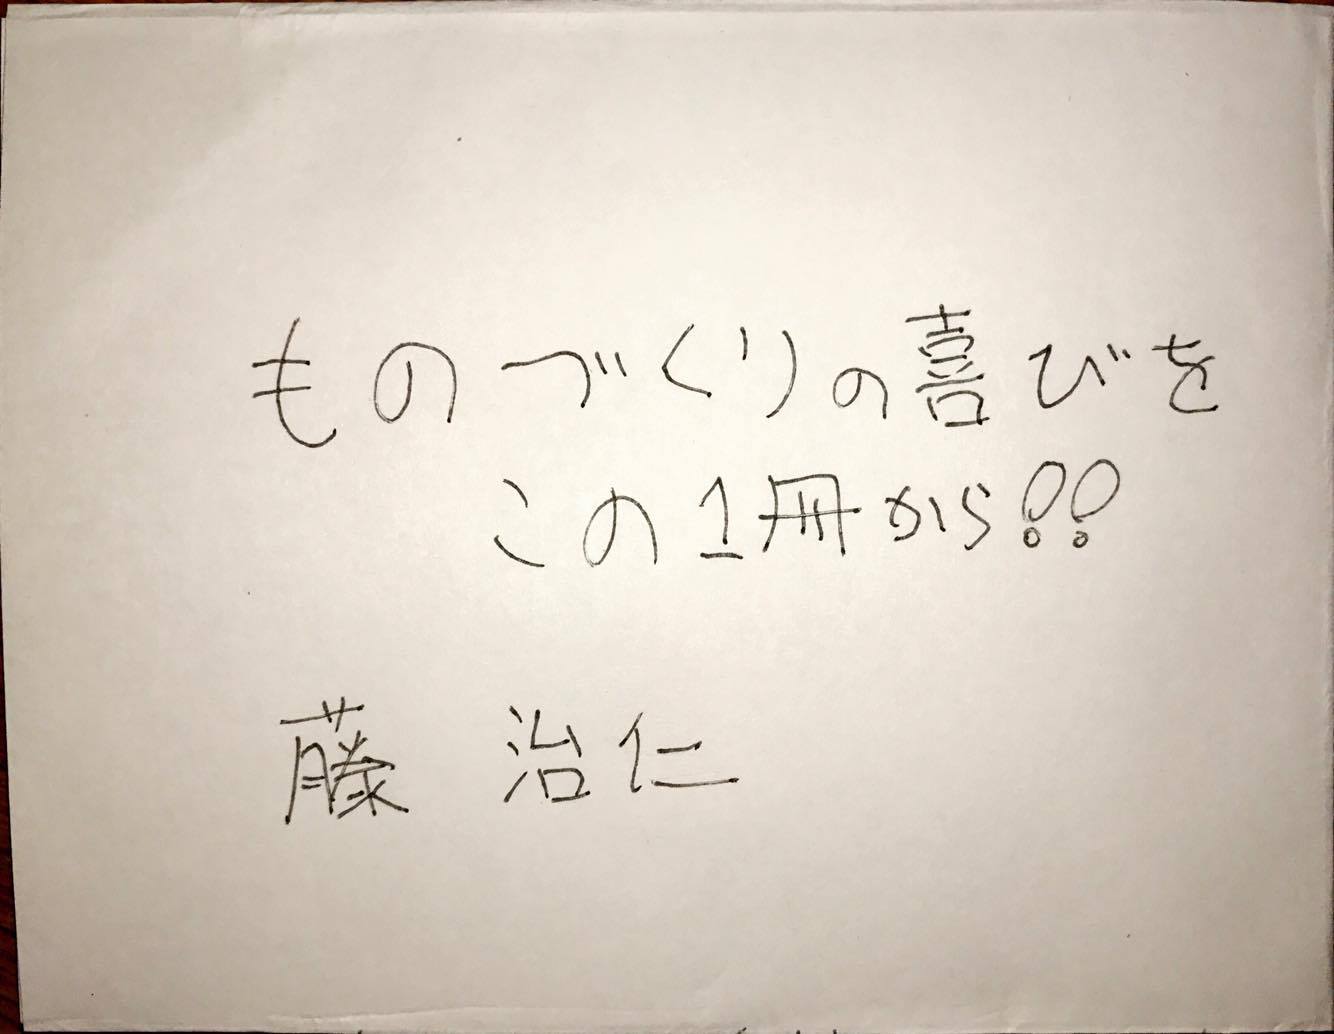 ものづくりの喜びを
この1冊から!!
藤 治仁